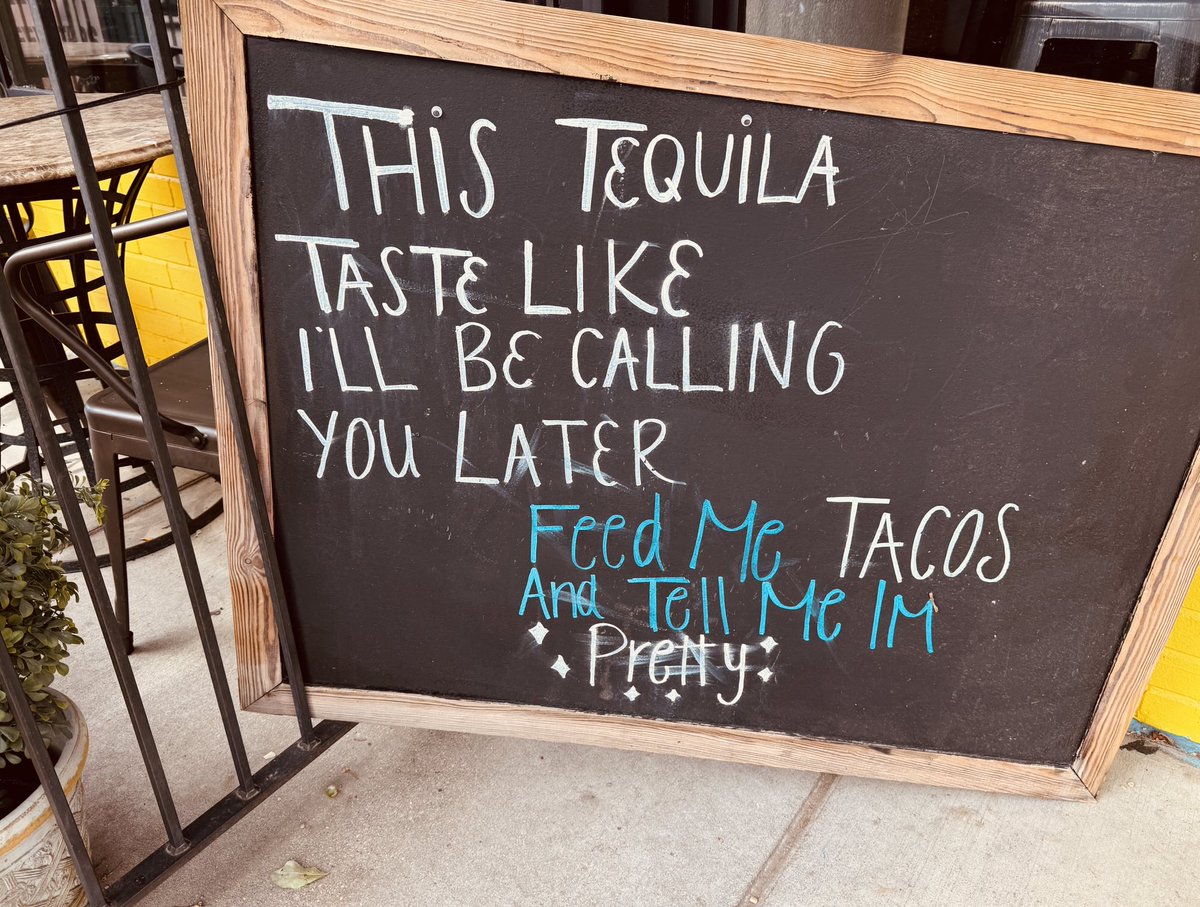 THiS TEQUiLA
TASTE LIKE
I'LL BE CALLING
YOU LATER
Feed Me TACOS
And Tell Me IM
Pretty